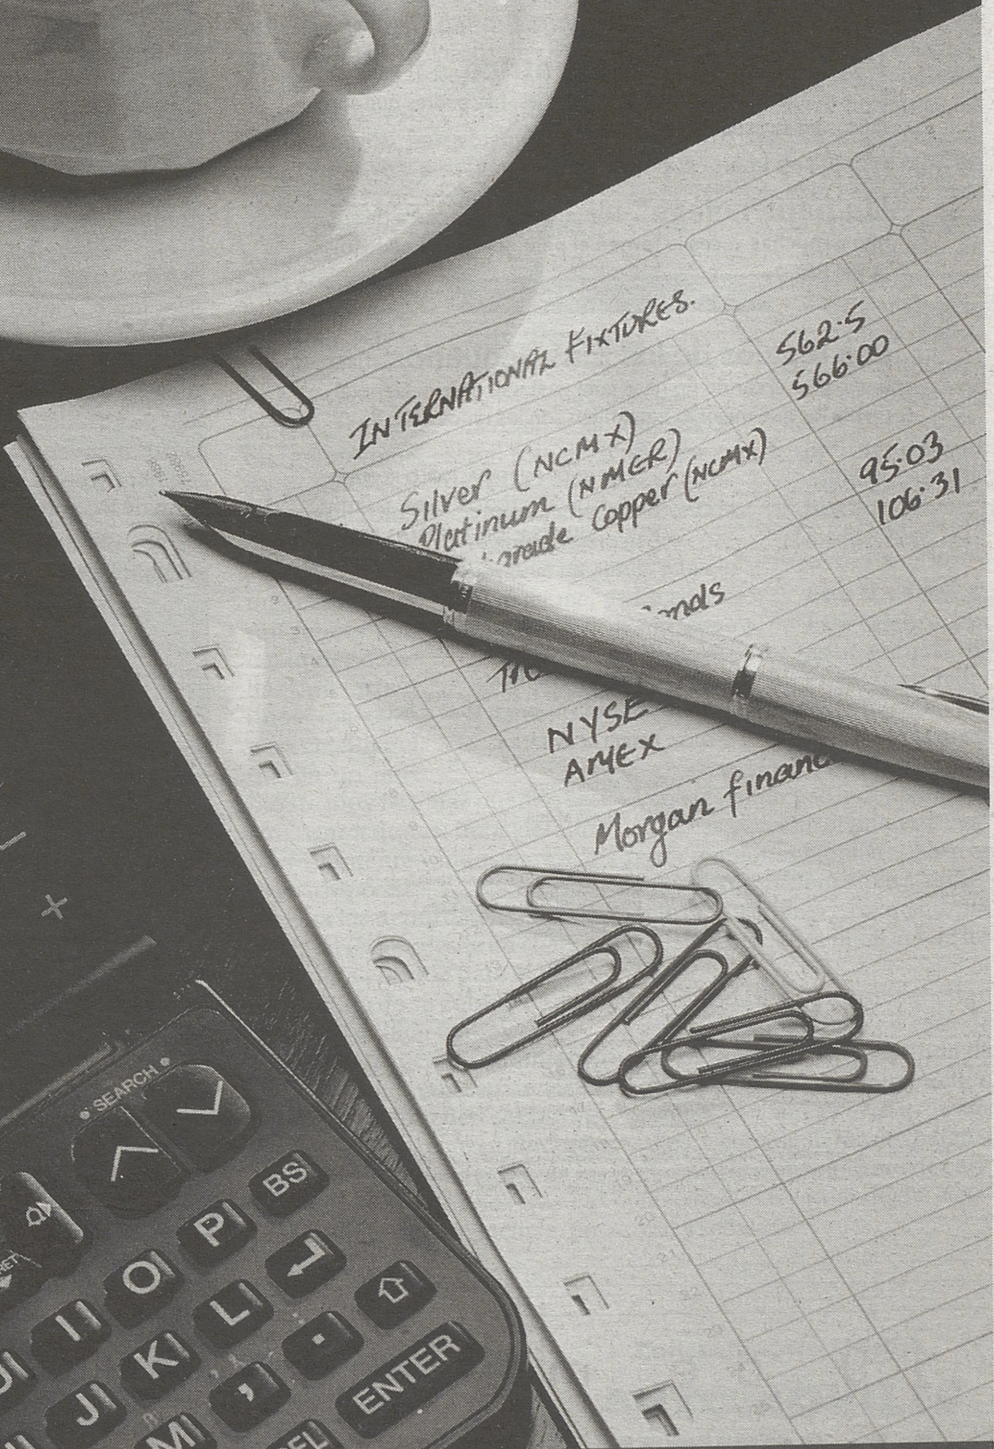 INTERNATIONAL FIXTURES.
Silver (NCMX) 562.5
Platinum (NMER) 566.00
grade Copper (NCMX)
95.03
106.31
NYSE
AMEX
Morgan
SEARCH
BS
P
O
I
L
K
J
,
.
M
ENTER